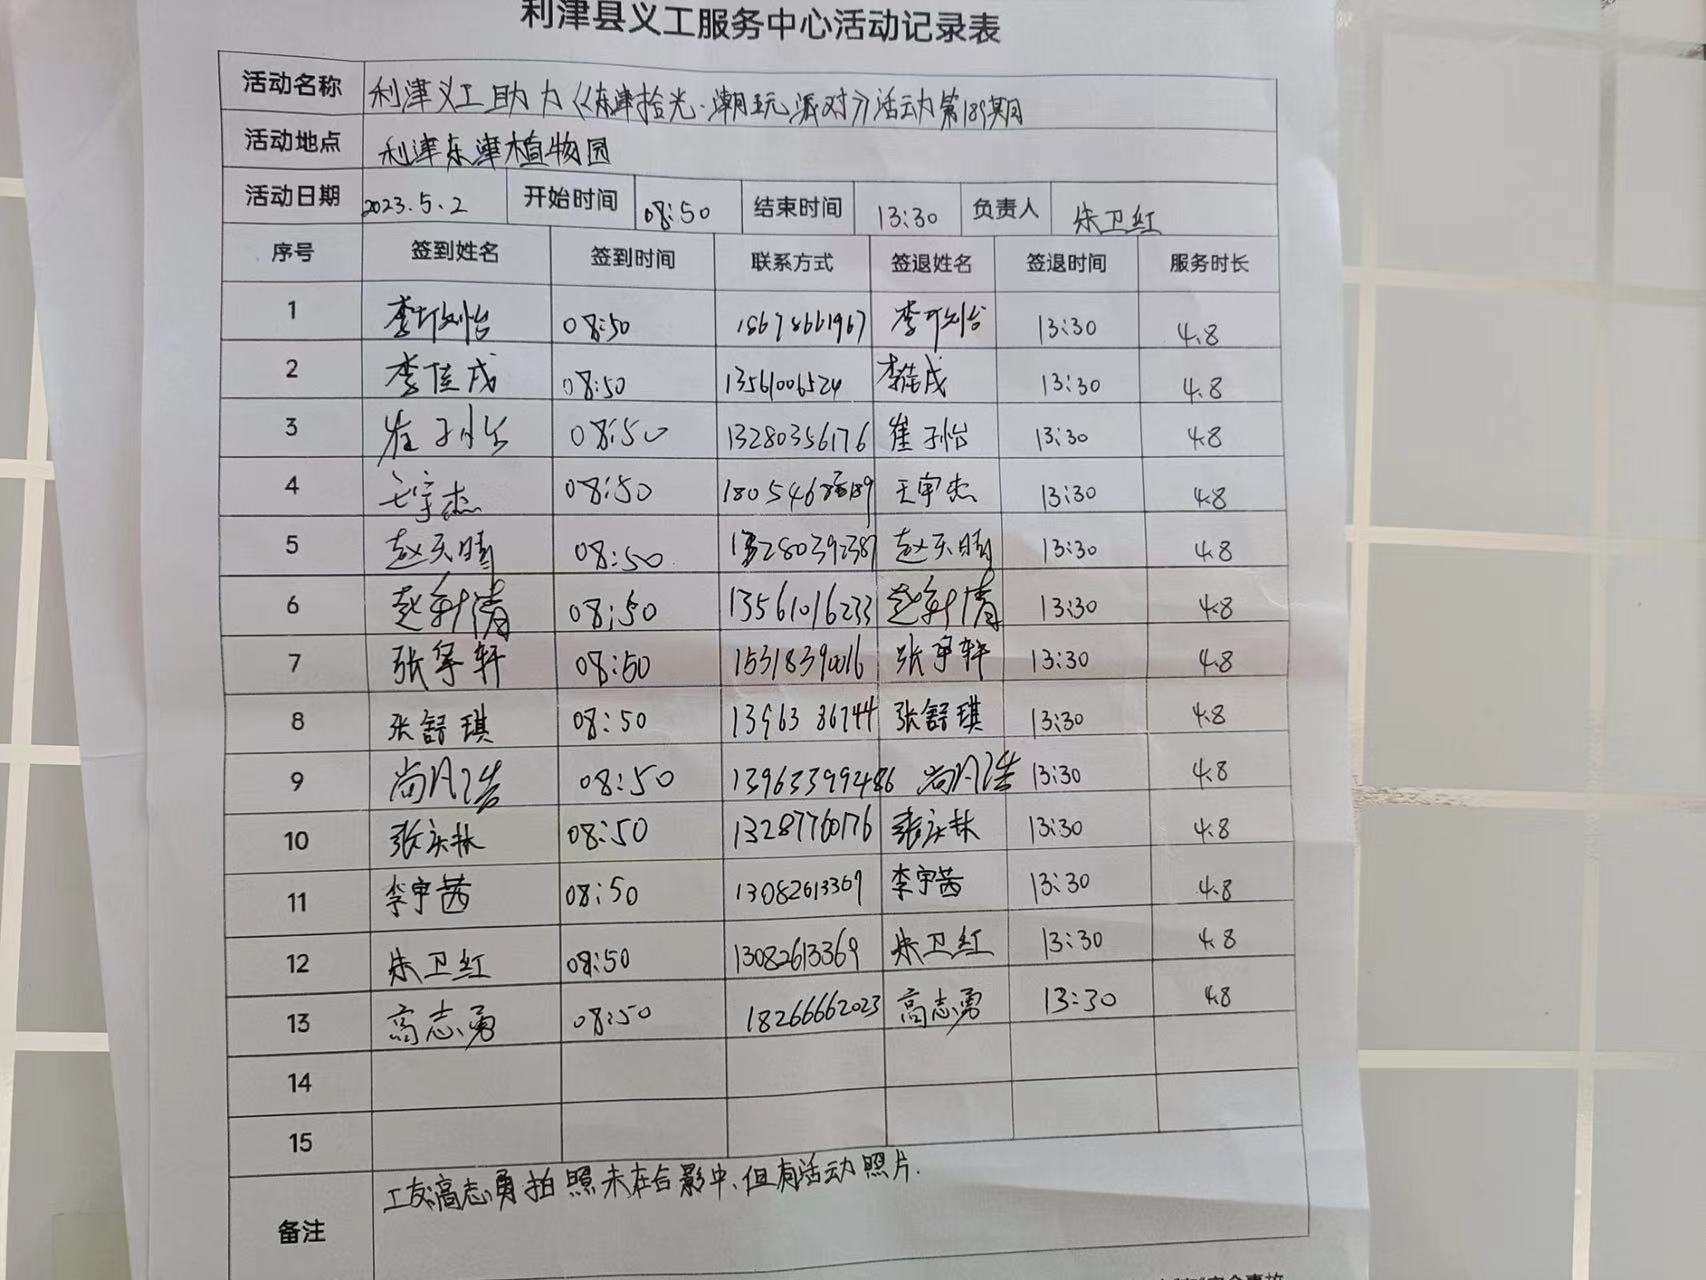 利津县义工服务中心活动记录表
活动名称 利津义工助力《东津拾光·潮玩派对》活动第189期
活动地点 利津东津植物园
活动日期 2023.5.2 开始时间 08:50 结束时间 13:30 负责人 朱卫红
序号 签到姓名 签到时间 联系方式 签退姓名 签退时间 服务时长
1 08:50 18678661967 13:30 4.8
2 李佳成 08:50 13561006524 李佳成 13:30 4.8
3 崔子怡 08:50 13280356176 崔子怡 13:30 4.8
4 王宇杰 08:50 王宇杰 13:30 4.8
5 赵天晴 08:50 13280392387 赵天晴 13:30 4.8
6 赵轩倩 08:50 13561016233 赵轩倩 13:30 4.8
7 张宇轩 08:50 15318390016 张宇轩 13:30 4.8
8 张舒琪 08:50 13963 86744 张舒琪 13:30 4.8
9 尚凡浩 08:50 139633992486 尚凡浩 13:30 4.8
10 张庆林 08:50 1328776076 张庆林 13:30 4.8
11 李宇茜 08:50 13082613369 李宇茜 13:30 4.8
12 朱卫红 08:50 13082613369 朱卫红 13:30 4.8
13 高志勇 08:50 18266662023 高志勇 13:30 4.8
14
15
备注 工友高志勇拍照未在合影中、但有活动照片.